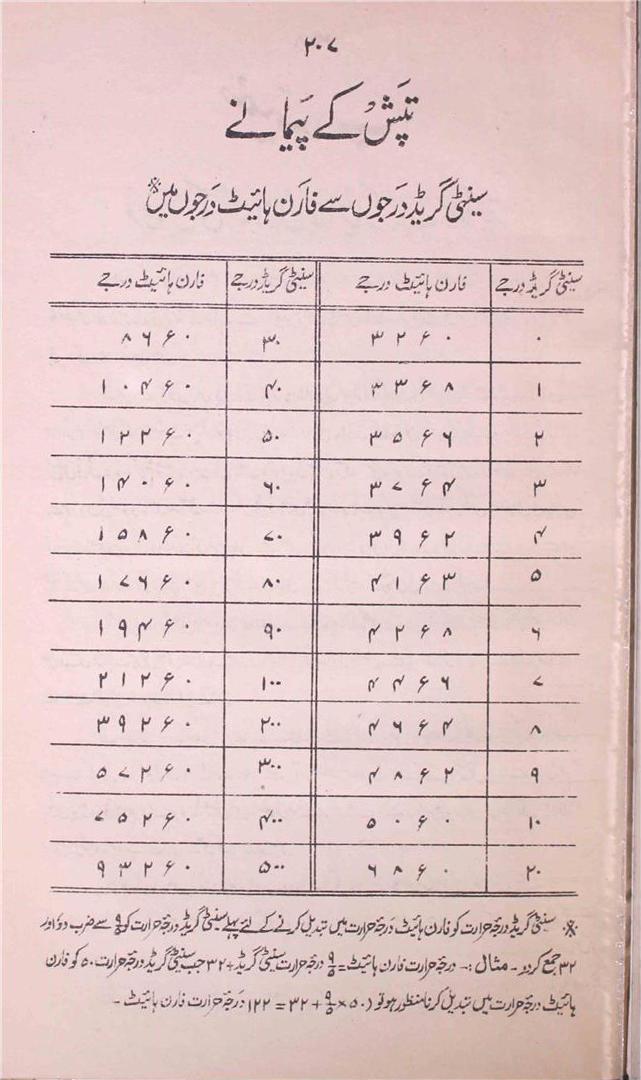 ۲۰۷
تپش کے پیمانے
سینٹی گریڈ درجوں سے فارن ہائیٹ درجوں میں※
سینٹی گریڈ درجے فارن ہائیٹ درجے سینٹی گریڈ درجے فارن ہائیٹ درجے
۰ ۳۲ء۰ ۳۰ ۸۶ء۰
۱ ۳۳ء۸ ۴۰ ۱۰۴ء۰
۲ ۳۵ء۶ ۵۰ ۱۲۲ء۰
۳ ۳۷ء۴ ۶۰ ۱۴۰ء۰
۴ ۳۹ء۲ ۷۰ ۱۵۸ء۰
۵ ۴۱ء۳ ۸۰ ۱۷۶ء۰
۶ ۴۲ء۸ ۹۰ ۱۹۴ء۰
۷ ۴۴ء۶ ۱۰۰ ۲۱۲ء۰
۸ ۴۶ء۴ ۲۰۰ ۳۹۲ء۰
۹ ۴۸ء۲ ۳۰۰ ۵۷۲ء۰
۱۰ ۵۰ء۰ ۴۰۰ ۷۵۲ء۰
۲۰ ۶۸ء۰ ۵۰۰ ۹۳۲ء۰
※ سینٹی گریڈ درجۂ حرارت کو فارن ہائیٹ درجۂ حرارت میں تبدیل کرنے کے لئے پہلے سینٹی گریڈ درجۂ حرارت کو ۹/۵ سے ضرب دو اور
۳۲ جمع کردو ۔ مثال :۔ درجۂ حرارت فارن ہائیٹ = ۹/۵ درجۂ حرارت سینٹی گریڈ + ۳۲ جب سینٹی گریڈ درجۂ حرارت ۵۰ کو فارن
ہائیٹ درجۂ حرارت میں تبدیل کرنا منظور ہو تو (۵۰ × ۹/۵ + ۳۲ = ۱۲۲ درجۂ حرارت فارن ہائیٹ ۔